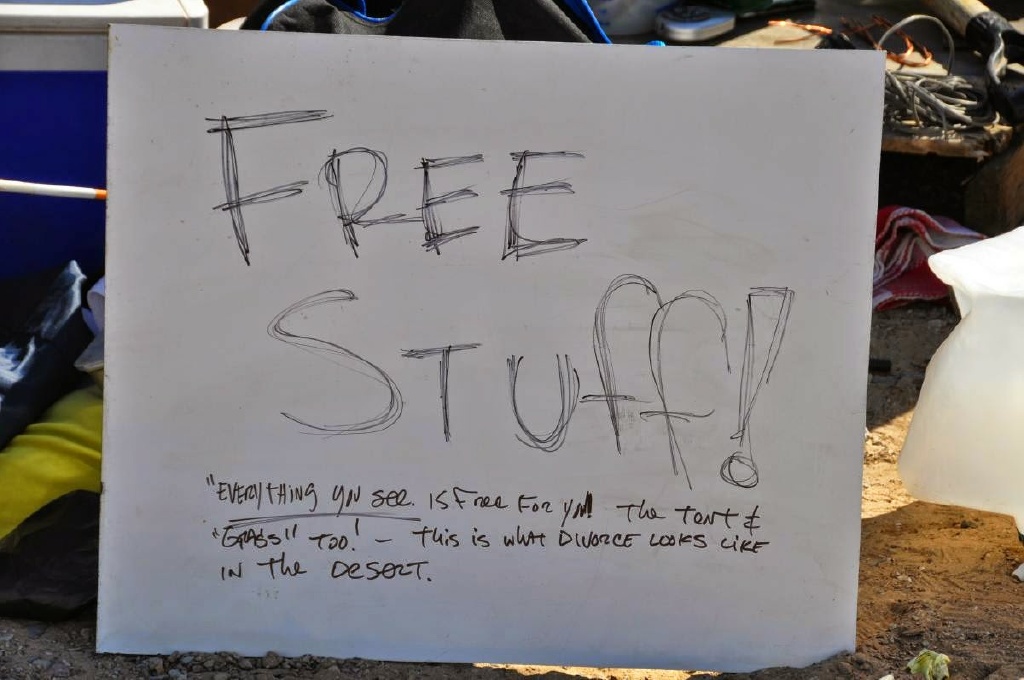 FREE
STUff!
"EVERYTHING YOU SEE IS FREE FOR YOU! THE TENT &
"GRASS" TOO! - THIS IS WHAT DIVORCE LOOKS LIKE
IN THE DESERT.